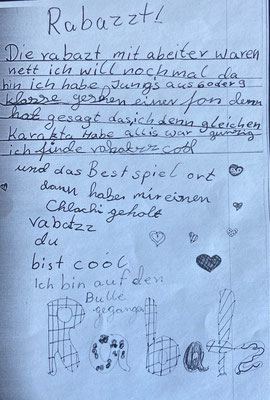 Rabazzt!
Die rabazt mit abeiter waren
nett ich will nochmal da
hin ich habe Jungs aus
klasse gesehen einer fon denn
hat gesagt das ich denn gleichen
Karakta Habe allis war günstig
ich finde rabatzz cool
und das Best spiel ort
dann haben mir einen
Chlachi geholt
rabatzz
du
bist cool
Ich bin auf den
Bulle
gegangen
Rabatz